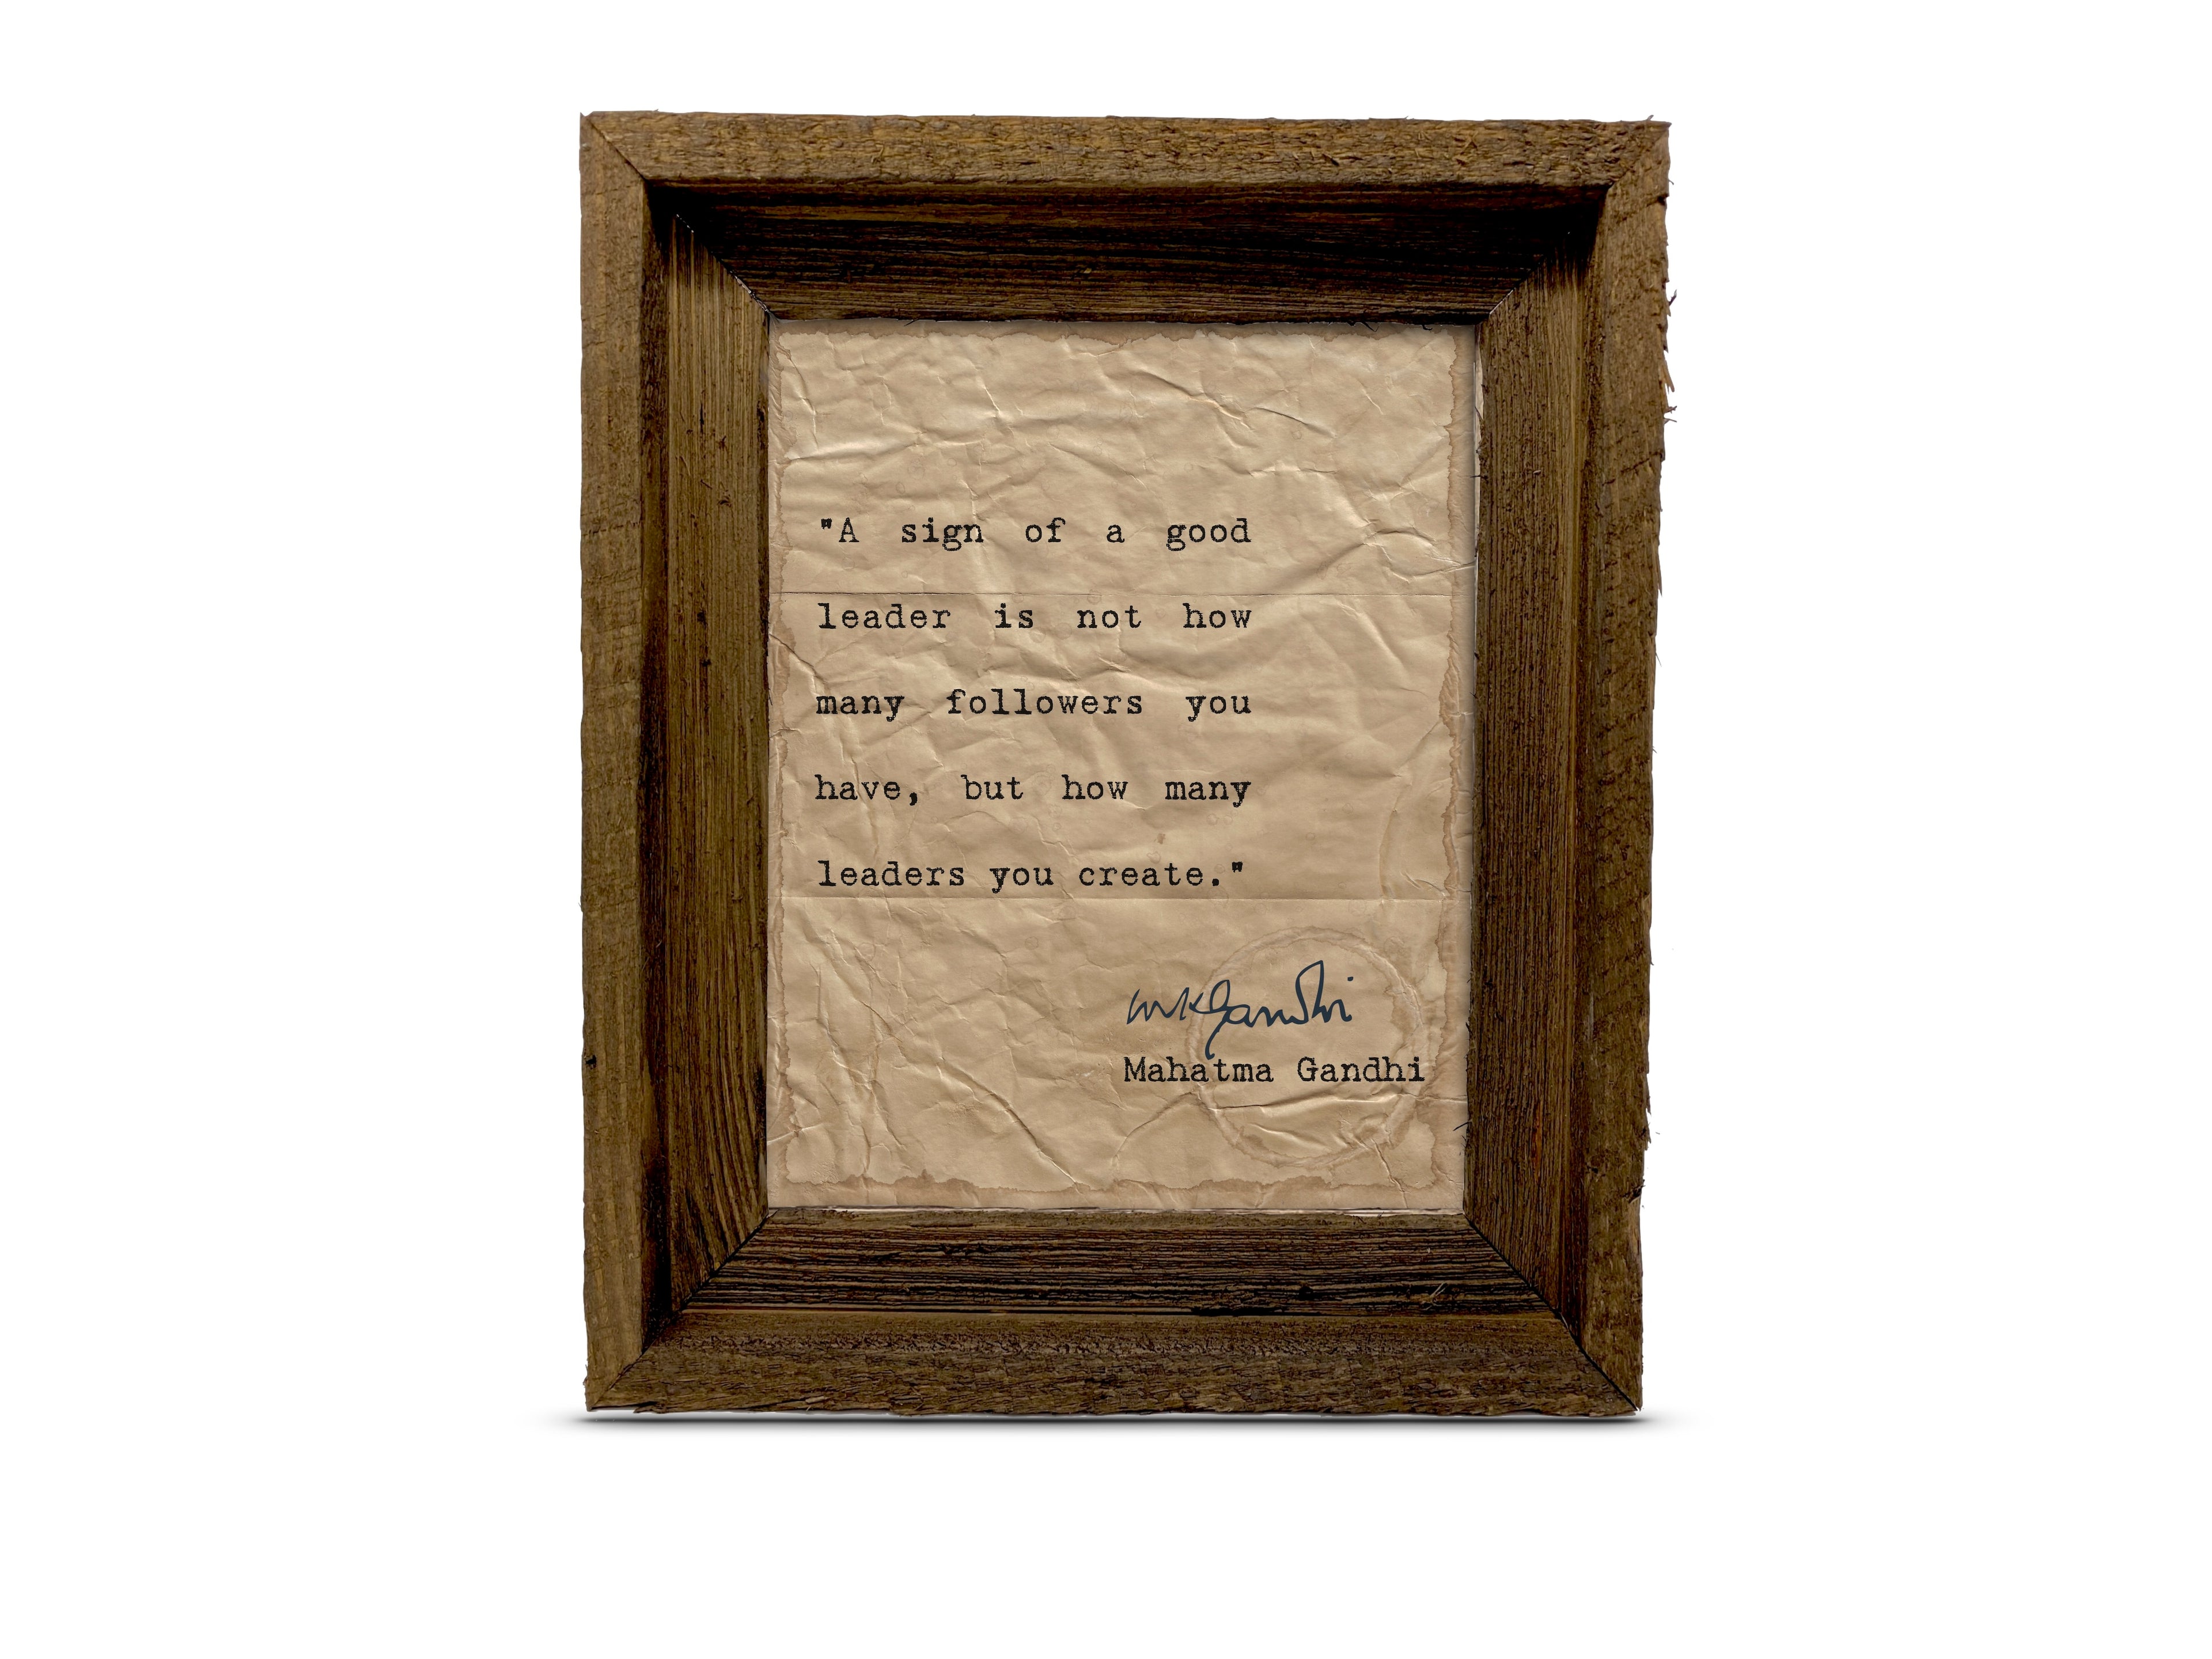 "A sign of a good
leader is not how
many followers you
have, but how many
leaders you create."
mkGandhi
Mahatma Gandhi